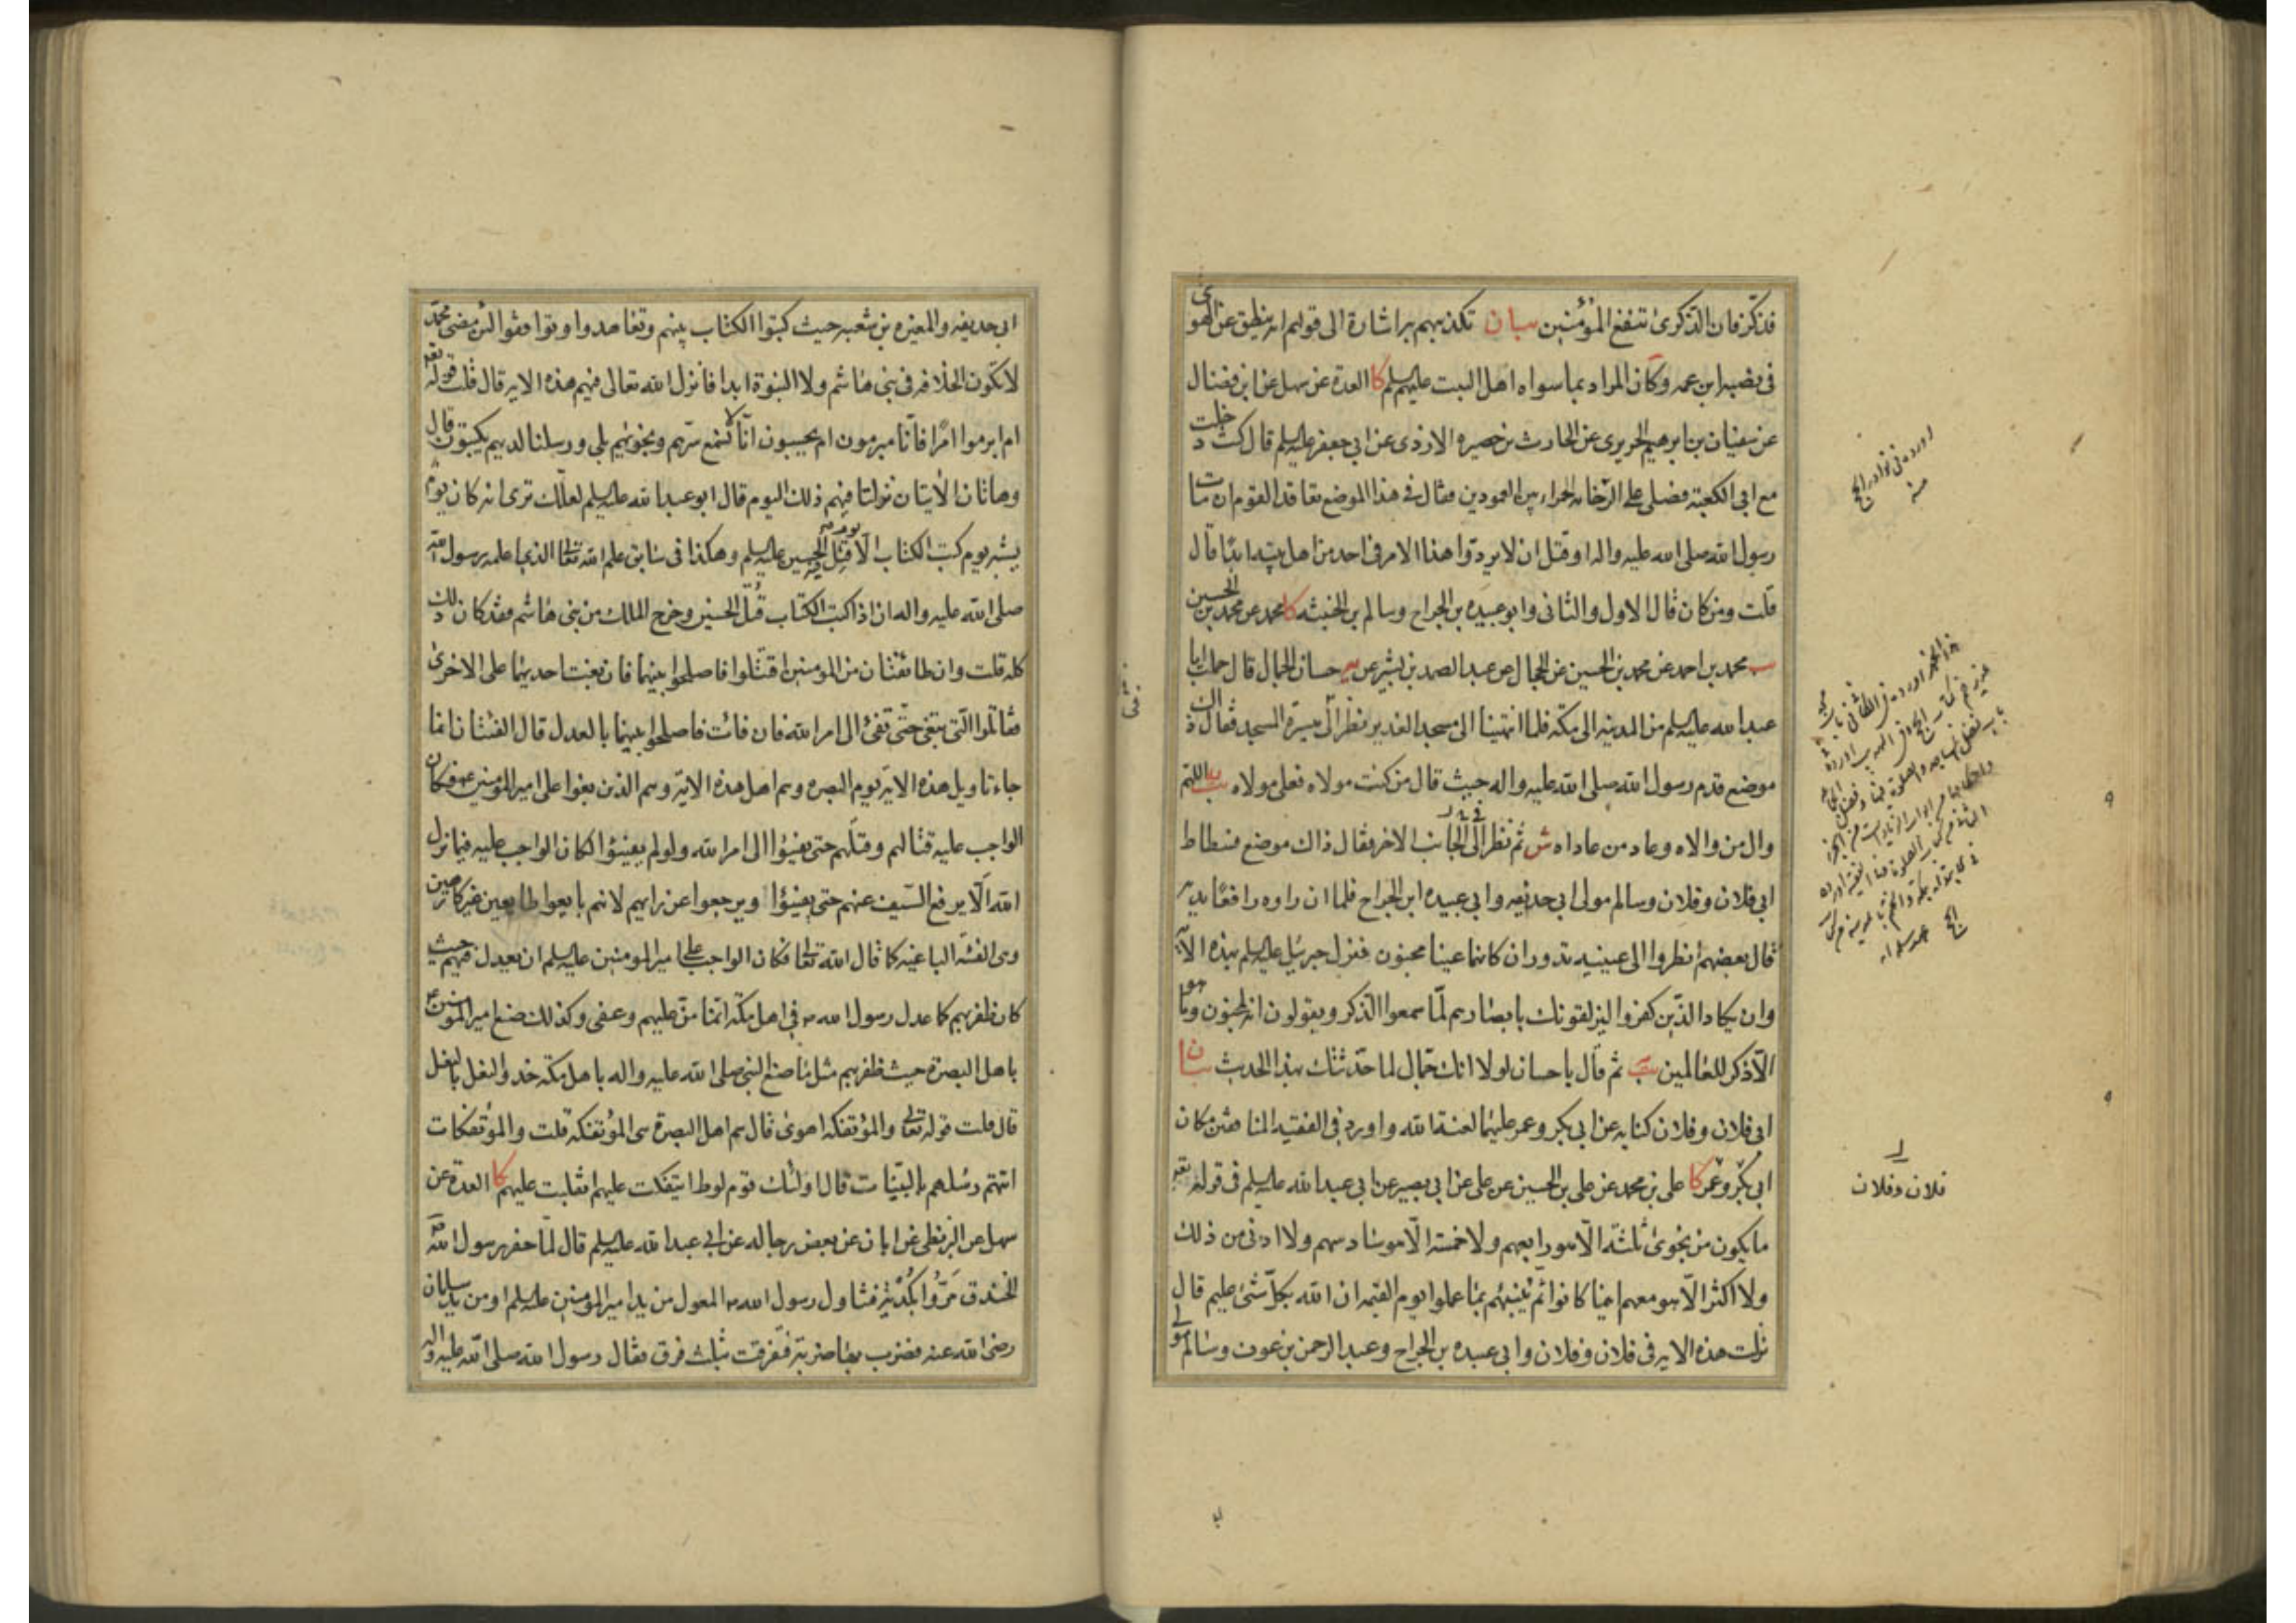 فذكّر فان الذكرى تنفع المؤمنين بيان تكذيبهم به اشارة الى قولهم انه ينطق عن الهوى
في نصبه ابن عمه وكان المراد بما سواه اهل البيت عليهم السلم كا العدة عن سهل عن ابن فضال
عن سفيان بن ابرهيم الحريرى عن الحارث بن حصيره الازدى عن ابى جعفر عليه السلم قال كنت دخلت
مع ابى الكعبة فصلى على الرخامه الحمراء بين العمودين فقال فى هذا الموضع تعاقد القوم ان مات
رسول الله صلى الله عليه واله او قتل ان لا يردوا هذا الامر فى احد من اهل بيته ابدا قال
قلت ومن كان قال الاول والثانى وابو عبيده بن الجراح وسالم بن الحبيبه كا محمد عن محمد بن الحسين
يب محمد بن احمد عن محمد بن الحسين عن الحجال عن عبد الصمد بن بشير عن حسان الجمال قال حملت ابا
عبد الله عليه السلم من المدينه الى مكه فلما انتهينا الى مسجد الغدير نظر الى ميسرة المسجد فقال ذاك
موضع قدم رسول الله صلى الله عليه واله حيث قال من كنت مولاه فعلى مولاه يب اللهم
وال من والاه وعاد من عاداه ش ثم نظر الى الجانب الاخر فقال ذاك موضع فسطاط
ابى فلان وفلان وسالم مولى ابى حذيفه وابى عبيده ابن الجراح فلما ان راوه رافعا يديه
قال بعضهم انظروا الى عينيه تدوران كانهما عينا مجنون فنزل جبرئيل عليه السلم بهذه الاية
وان يكاد الذين كفروا ليزلقونك بابصارهم لمّا سمعوا الذكر ويقولون انه لمجنون وما هو
الّا ذكر للعالمين يب ثم قال يا حسان لولا انك جمّالى لما حدّثتك بهذا الحديث بيان
ابى فلان وفلان كنايه عن ابى بكر وعمر عليهما لعنة الله واورد فى الفقيه المنافقين مكان
ابى بكر وعمر كا على بن محمد عن على بن الحسين عن على عن ابى بصير عن ابى عبد الله عليه السلم فى قوله تعه
ما يكون من نجوى ثلثة الّا هو رابعهم ولا خمسة الّا هو سادسهم ولا ادنى من ذلك
ولا اكثر الّا هو معهم اينما كانوا ثم ينبئهم بما عملوا يوم القيمه ان الله بكل شئ عليم قال
نزلت هذه الايه فى فلان وفلان وابى عبيده بن الجراح وعبد الرحمن بن عوف وسالم مولى
اورده فى نوادر الحج
منه
فلان وفلان
ابى حذيفه والمغيره بن شعبه حيث كتبوا الكتاب بينهم وتعاهدوا وتوافقوا لئن مضى محمّد
لا تكون الخلافه فى بنى هاشم ولا النبوة ابدا فانزل الله تعالى فيهم هذه الايه قال قلت قوله تعه
ام ابرموا امرا فانا مبرمون ام يحسبون انّا لا نسمع سرّهم ونجويهم بلى ورسلنا لديهم يكتبون قال
وهاتان الايتان نزلتا فيهم ذلك اليوم قال ابو عبد الله عليه السلم لعلك ترى انه كان يوم
يشبه يوم كتب الكتاب الّا يوم قتل الحسين عليه السلم وهكذا فى سابق علم الله تعالى الذى اعلمه رسول الله
صلى الله عليه واله ان اذا كتب الكتاب قُتل الحسين وخرج الملك من بنى هاشم فقد كان ذلك
كله قلت وان طائفتان من المومنين اقتتلوا فاصلحوا بينهما فان بغت احديهما على الاخرى
فقاتلوا الّتى تبغى حتّى تفئ الى امر الله فان فائت فاصلحوا بينهما بالعدل قال الفئتان انما
جاء تاويل هذه الاية يوم البصره وهم اهل هذه الاية وهم الذين بغوا على امير المومنين ع فكان
الواجب عليه قتالهم وقتلهم حتى يفيئوا الى امر الله ولو لم يفيئوا لكان الواجب عليه فيما نزل
الله الّا يرفع السّيف عنهم حتى يفيئوا ويرجعوا عن رايهم لانهم بايعوا طايعين غير كارهين
وهى الفئه الباغيه كما قال الله تعالى فكان الواجب على امير المومنين عليه السلم ان يعدل فيهم حيث
كان ظفر بهم كما عدل رسول الله ص فى اهل مكّة انما منّ عليهم وعفى وكذلك صنع امير المومنين ع
باهل البصرة حيث ظفر بهم مثل ما صنع النبى صلى الله عليه واله باهل مكه حذو النعل بالنعل
قال قلت قوله تعالى والمؤتفكه اهوى قال هم اهل البصرة هى المؤتفكه قلت والمؤتفكات
اتتهم رسلهم بالبيّنات قال اولئك قوم لوط ائتفكت عليهم انقلبت عليهم كا العدة عن
سهل عن البزنطى عن ابان عن بعض رجاله عن ابى عبد الله عليه السلم قال لمّا حفر رسول الله ص
الخندق مرّوا بكُدْية فتناول رسول الله ص المعول من يد امير المومنين عليه السلم او من يد سلمان
رضى الله عنه فضرب بها ضربة فتفرقت بثلث فرق فقال رسول الله صلى الله عليه واله